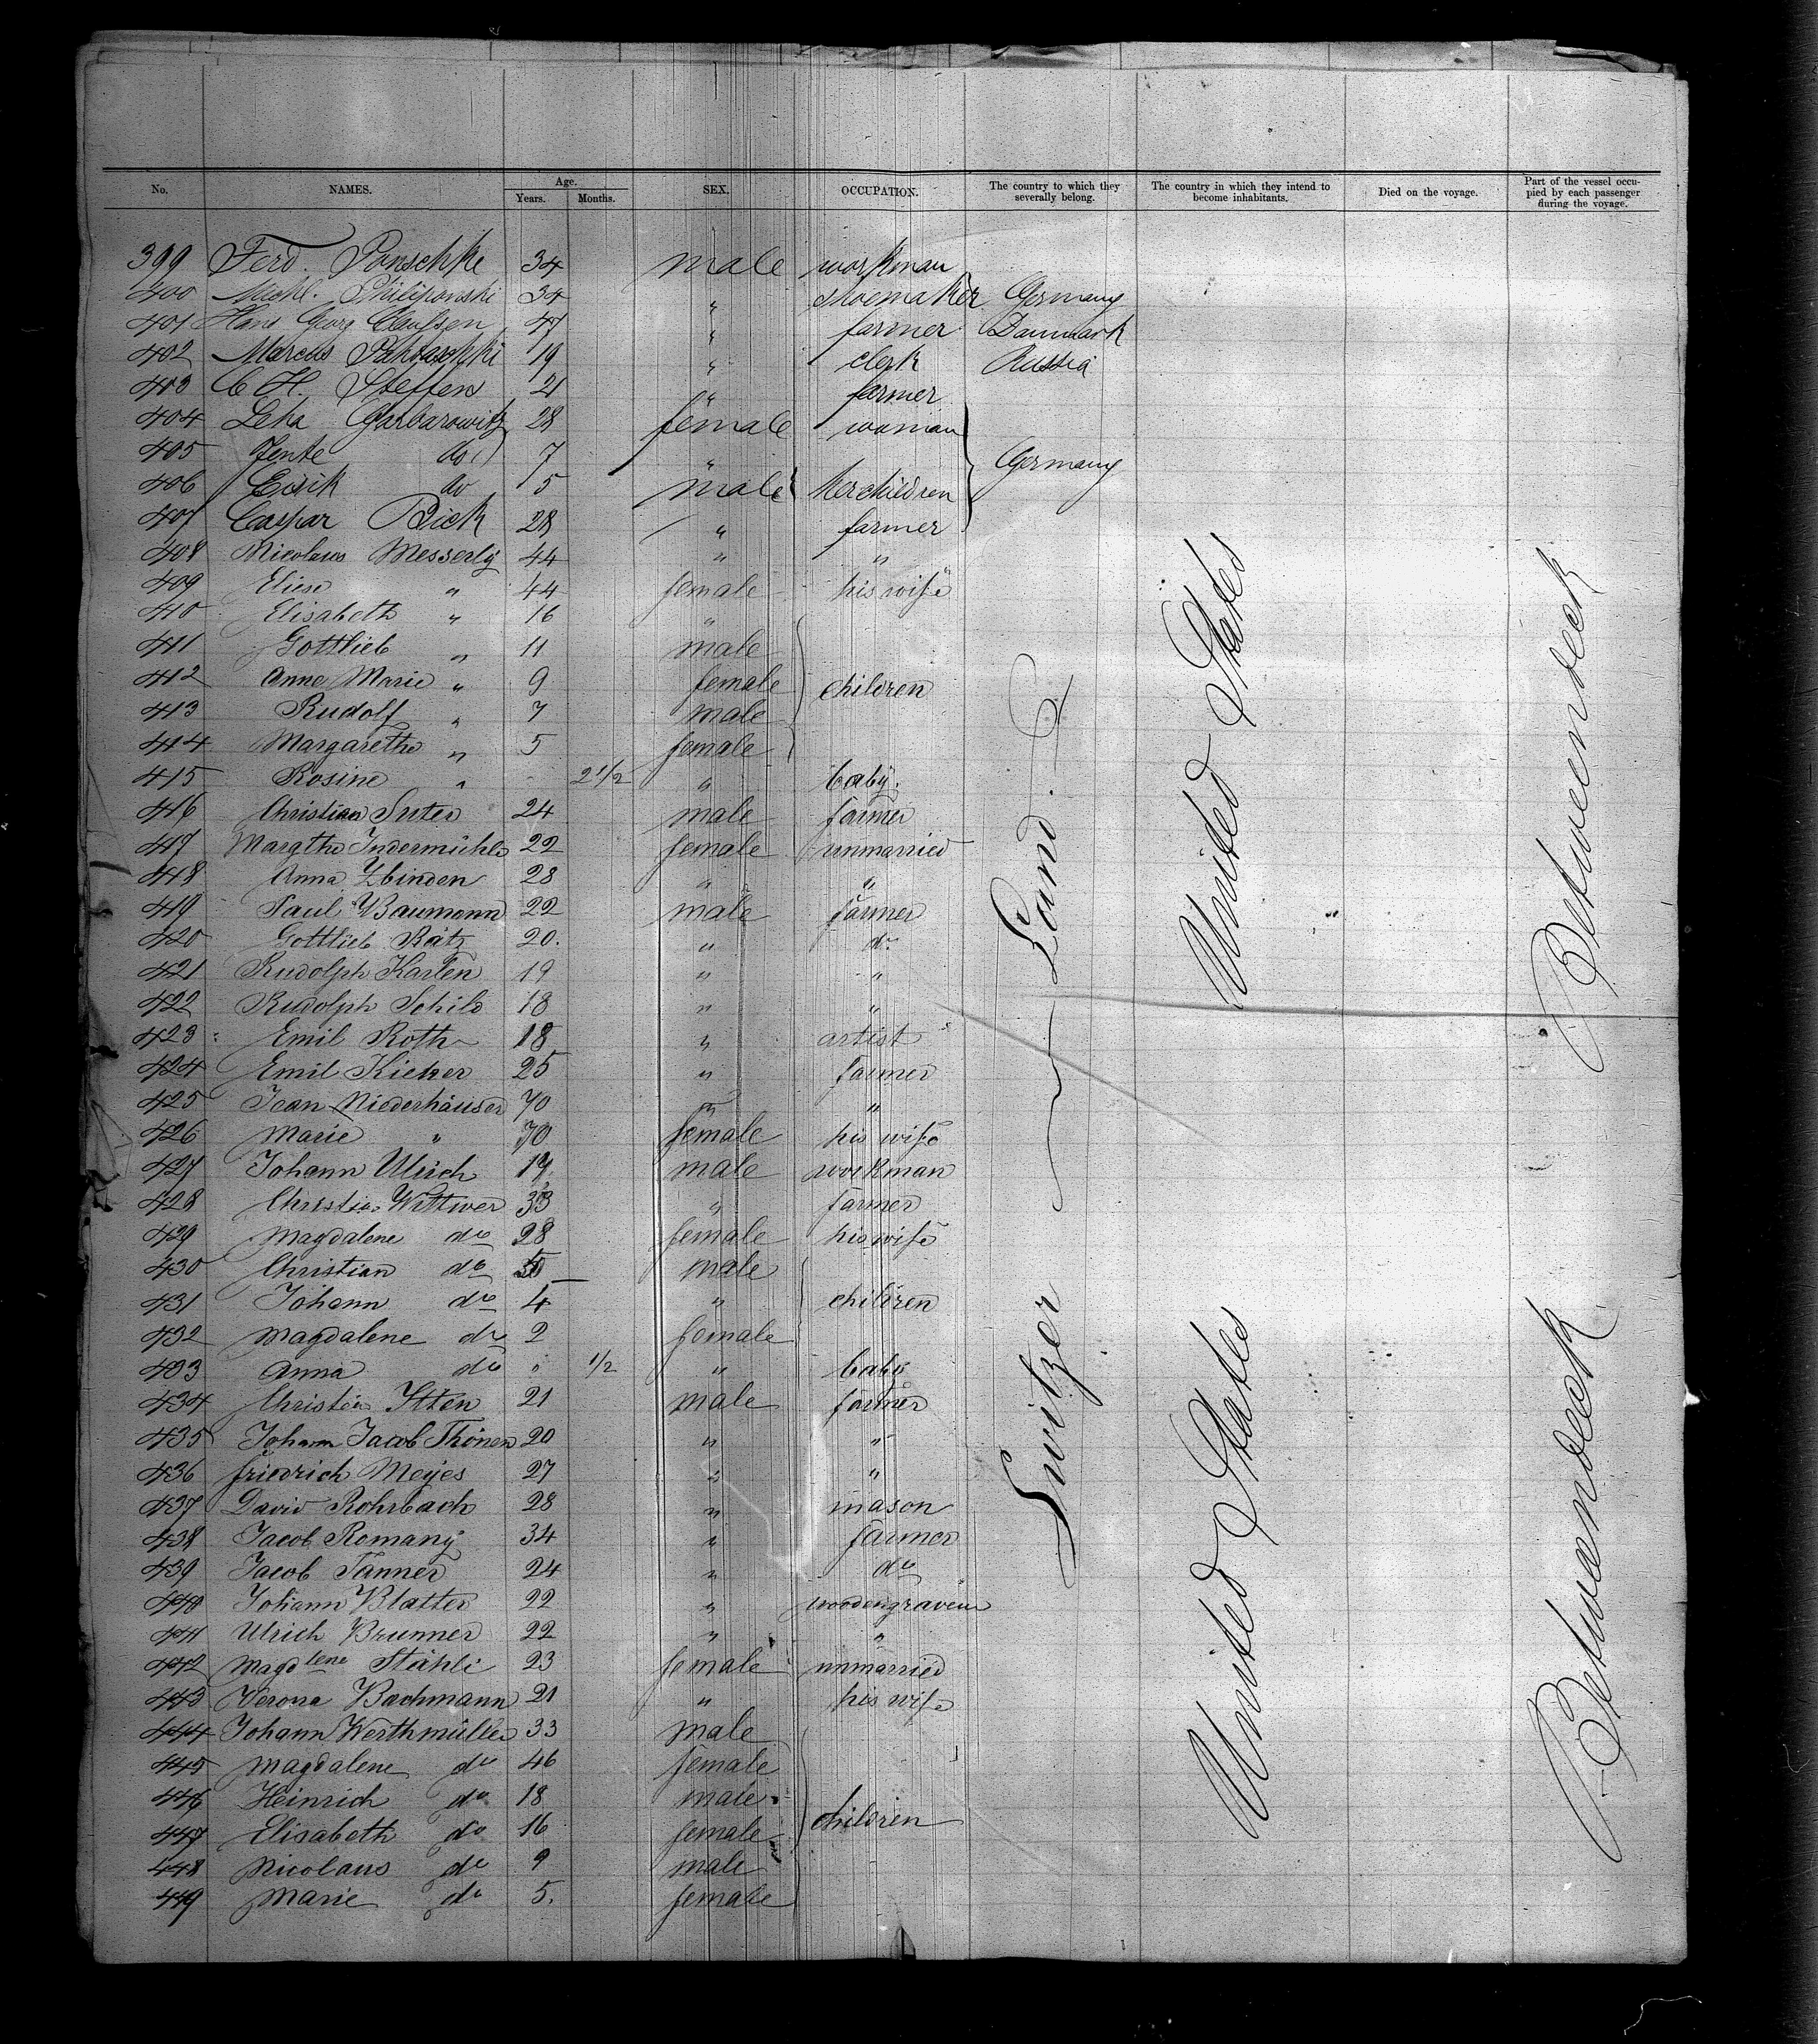 No. NAMES. Age. Years. Months. SEX. OCCUPATION. The country to which they severally belong. The country in which they intend to become inhabitants. Died on the voyage. Part of the vessel occupied by each passenger during the voyage.
399 Ferd. Ponschke 34 male workman
400 Michl. Philiponski 34 " shoemaker Germany
401 Hans Georg Claussen 47 " farmer Danmark
402 Marcus 19 " clerk Russia
403 C H. Steffen 21 " farmer
404 Lena Garbarowitz 28 female woman
405 Jente do 7 " Germany
406 do 5 male her children
407 Caspar Bick 28 " farmer
408 Nicolaus Messerly 44 " "
409 Eliese " 44 female his wife
410 Elisabeth " 16 "
411 Gottlieb " 11 male
412 Anne Marie " 9 female children
413 Rudolf " 7 male
414 Margarethe " 5 female
415 Rosine " 2 1/2 " baby.
416 Christian Suter 24 male farmer
417 Margthe Indermühle 22 female unmarried
418 Anna Zbinden 28 " "
419 Paul Baumann 22 male farmer
420 Gottlieb Rätz 20. " do
421 Rudolph Karlen 19 " "
422 Rudolph Schild 18 " "
423 Emil Roth 18 " artist
424 Emil Kiener 25 " farmer
425 Jean Niederhäuser 70 " "
426 Marie " 70 female his wife
427 Johann Ulrich 19 male workman
428 Christian Wittwer 33 " farmer
429 Magdalene do 28 female his wife
430 Christian do 5 male
431 Johann do 4 " children
432 Magdalene do 2 female
433 Anna do " 1/2 " baby
434 Christian Itten 21 male farmer
435 Johann Jacob Thönen 20 " "
436 Friedrich Meyes 27 " "
437 David Rohrbach 28 " mason
438 Jacob Romany 34 " farmer
439 Jacob Tanner 24 " do
440 Johann Blatter 22 " woodengraveur
441 Ulrich Brunner 22 " "
442 Magdlene Stähli 23 female unmarried
443 Verona Bachmann 21 " his wife
444 Johann Werthmüller 33 male
445 Magdalene do 46 female
446 Heinrich do 18 male
447 Elisabeth do 16 female children
448 Nicolaus do 9 male
449 Marie do 5. female
Switzer Land.
United States
United States
Betweendeck
Betweendeck